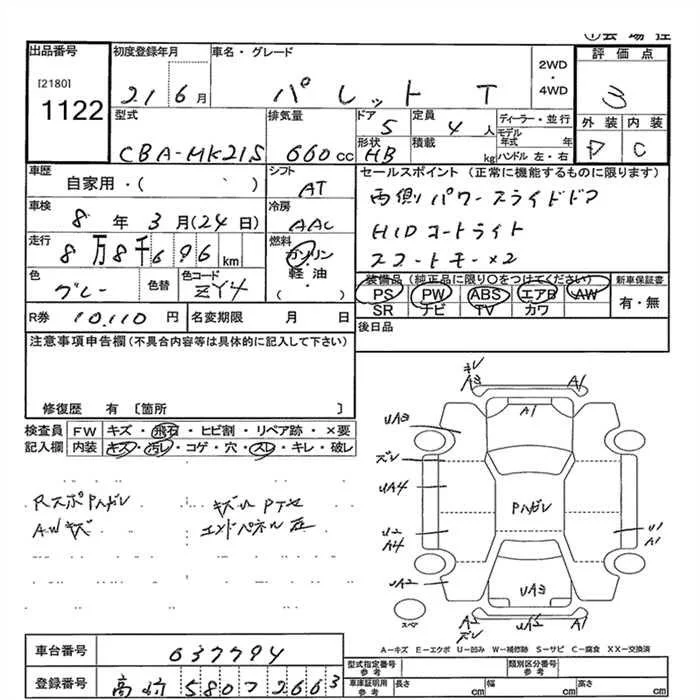 ①会場控
出品番号 初度登録年月 車名・グレード 評価点
[2180]
1122
21 6月 パレット T 2WD・4WD 3
型式 排気量 ドア 定員 ディーラー・並行 外装 内装
CBA-MK21S 660cc 5 4人 モデル年式 年 D C
形状 積載 kg ハンドル 左・右
HB
車歴 シフト セールスポイント (正常に機能するものに限ります)
自家用・( ) AT 両側パワースライドドア
車検 冷房 HIDヘッドライト
8年3月(24日) AAC スマートキー×2
走行 燃料
8万8千696km ガソリン・軽油・( )
装備品 (純正品に限り〇をつけてください) 新車保証書
色 色替 色コード PS PW ABS エアB AW 有・無
グレー ZY4 SR ナビ TV カワ
R券 10,110円 名変期限 月 日 後日品
注意事項申告欄(不具合内容等は具体的に記入して下さい)
修復歴 有 〔箇所 〕
検査員 FW キズ・飛石・ヒビ割・リペア跡・×要
記入欄 内装 キズ・汚レ・コゲ・穴・スレ・キレ・破レ
RスポPハガレ
AWキズ
エンドパネル
キレ
A3 A1
A1
UA3
ズレ
UA4
Pハガレ
U2 U1
A4 A1
UA2 UA3
スペア
A2 UA5 A1
ズレ
A-キズ E-エクボ U-凹み W-補修跡 S-サビ C-腐食 XX-交換済
車台番号 637794
登録番号 高崎 580 フ 2663
型式指定番号 参考 類別区分番号 参考
車庫証明用 参考 長さ cm 幅 cm 高さ cm